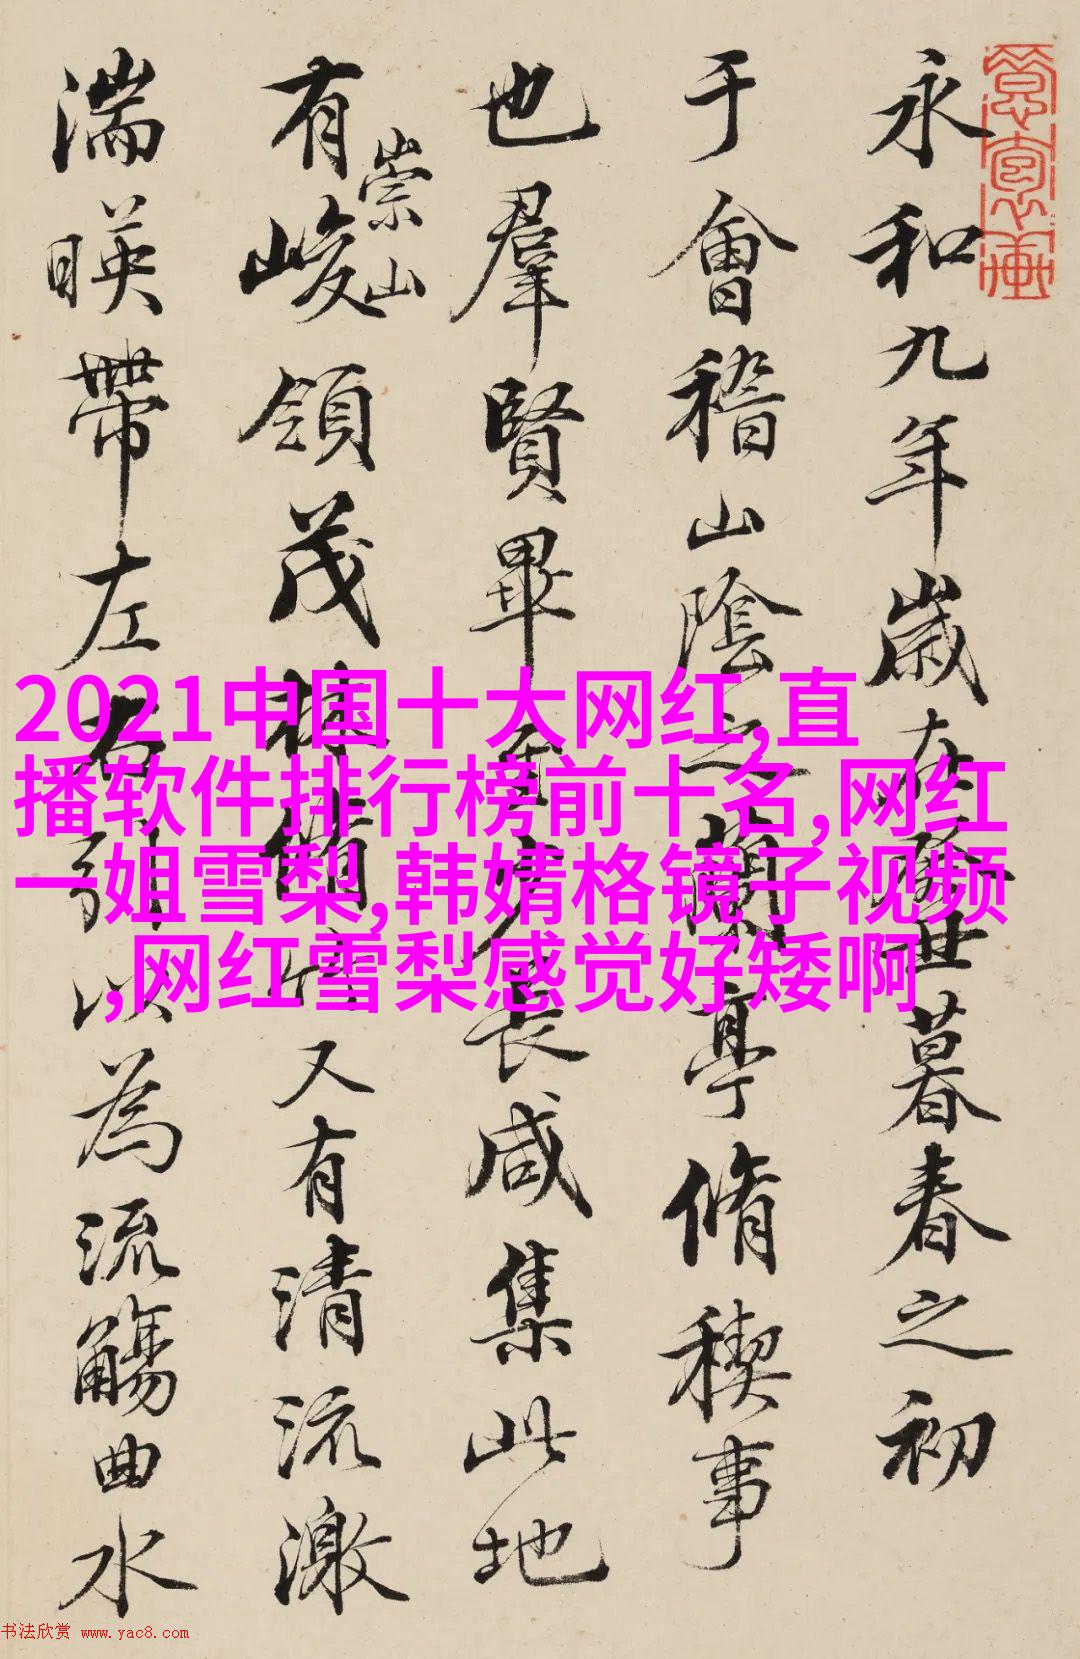 永和九年歲在癸丑暮春之初
于會稽山陰之蘭亭脩稧事
也羣賢畢至少長咸集此地
有崇山峻領茂林脩竹又有清流激
湍暎帶左右引以為流觴曲水
2021中国十大网红,直
播软件排行榜前十名,网红
一姐雪梨,韩婧格镜子视频
,网红雪梨感觉好矮啊
书法欣赏 www.yac8.com